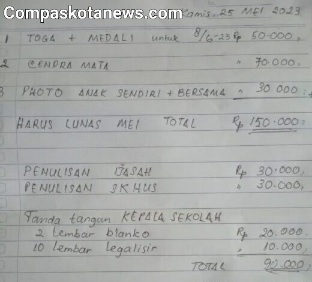 Compaskotanews.com
Kamis, 25 MEI 2023
1 TOGA + MEDALI untuk 8/6-23 Rp 50.000,
2 CENDRA MATA " 70.000,
3 PHOTO ANAK SENDIRI + BERSAMA " 30.000
HARUS LUNAS MEI TOTAL Rp 150.000,
PENULISAN IJASAH Rp 30.000,
PENULISAN SKHUS " 30.000,
Tanda tangan KEPALA SEKOLAH
2 Lembar blanko Rp 20.000,
10 lembar legalisir " 10.000,
TOTAL 90.000,